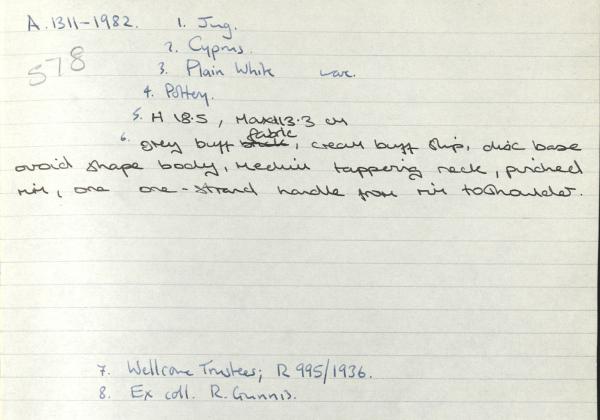 A.1311-1982. 1. Jug.
578
2. Cyprus.
3. Plain White ware.
4. Pottery.
5. H 18.5, Maxd 13.3 cm
6. grey buff fabric, cream buff slip, disc base
ovoid shape body, medium tappering neck, pinched
rim, one one-strand handle from rim to shoulder.
7. Wellcome Trustees; R 995/1936.
8. Ex coll. R. Gunnis.